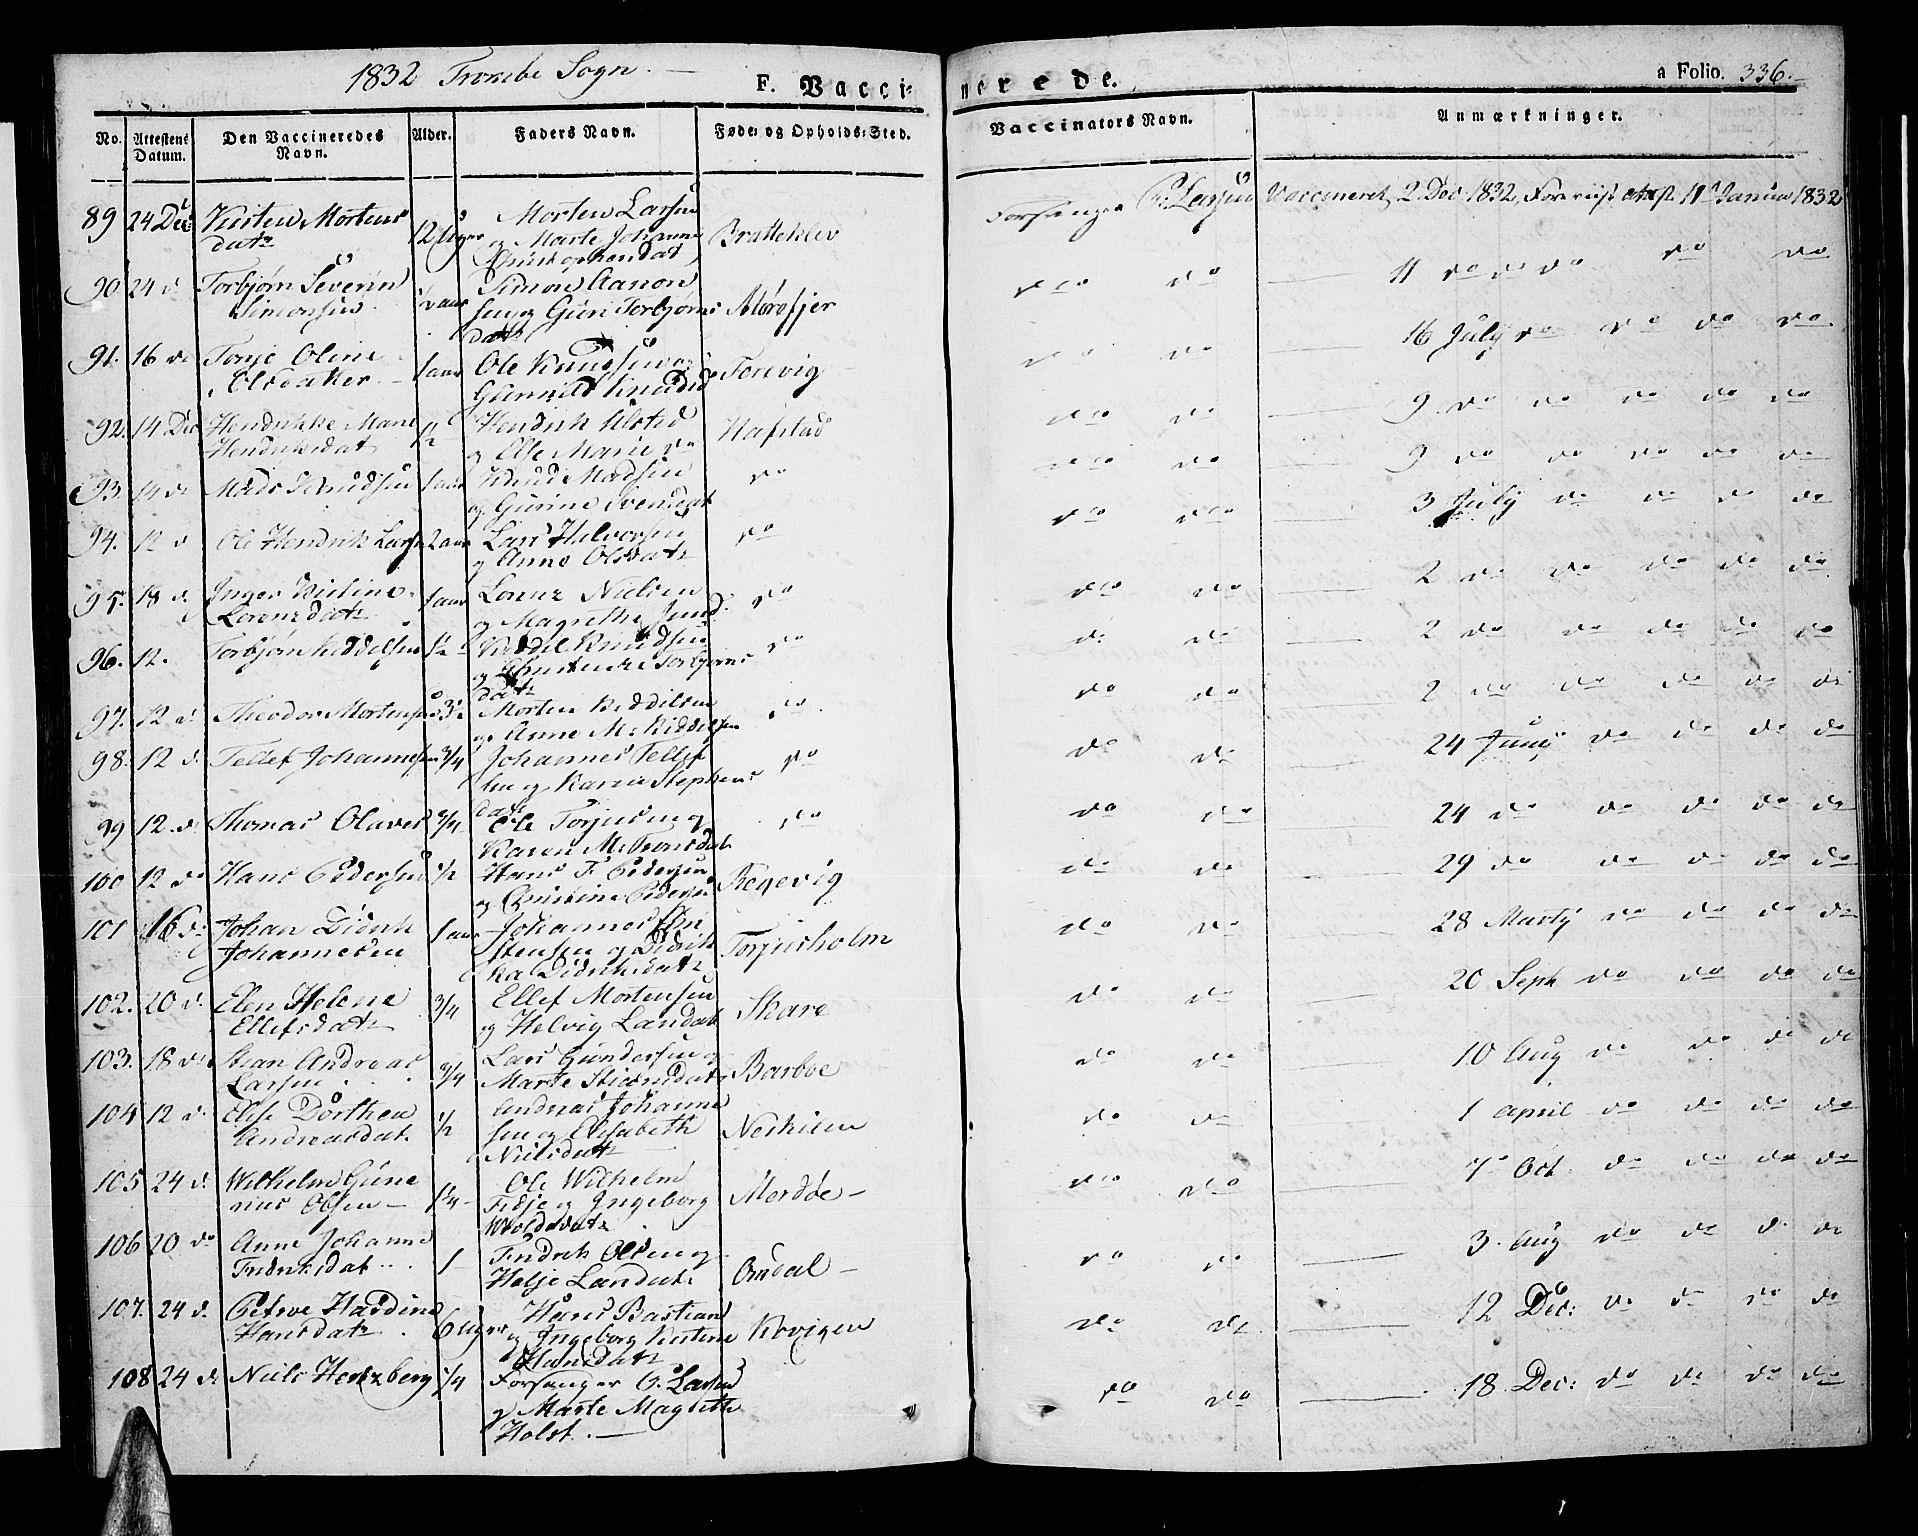 1832 Tromøe Sogn. —
F. Vacci-
nerede.
a Folio. 336.
No. Attestens Datum. Den Vaccineredes Navn. Alder. Faders Navn. Føde- og Opholds-Sted. Vaccinators Navn. Anmærkninger.
89 24 Dec Kirsten Mortens 12 Uger Morten Larsen Bratteklev Forsanger O. Larsen Vaccineret 2 Dec 1832, Foreviist
datr og Marte Johanne
90 24 d Torbjørn Severin Simon Aanon do do 11 do do do do do
Simonsen sen og Guri Torbjørns
datr
91. 16 do Tonje Oline 1 aar Ole Knudsen og Torevig do do 16 July do do do do
Olsdatter Gunnild Knudsd
92. 14 Dec Hendrikke Marie 1/2 Hendrik Ulsted Hafstad do do 9 do do do do do
Hendriksdat og Else Marie do
93. 14 d Mads Knudsen 1 aar Knud Madsen do do do 9 do do do do do
og Gurine Svensdat
94. 12 d Ole Hendrik Larsen 2 aar Lars Halvorsen do do do 3 July do do do do
og Anne Olsdatr
95. 18 d. Inger 1 aar Lorenz Nielsen do do do 2 do do do do do
Lorenzdatr og Magrethe
96. 12. Torbjørn Keddelsen 1/2 Keddel Knudsen do d: do 2 do do do do do
og Torbjørns
datr
97. 12 d. Theodor Mortensen Morten Keddelsen do do do 2 do do do do d:
og Anne M. Keddelsen
98. 12 d. Tellef Johannesen 3/4 Johannes Tellef do do do 24 Juny do do do do
sen og Karen Stephens
datr
99 12. d. Thomas Olaves 3/4 Ole Torjusen og do do do 24 do do do do do
Karen M.
100 12 do Hans Pedersen 1/2 Hans F. Pedersen Regevig do do 29 do do do do do
og Christine
101 16 d: Johan Didrik 1 aar Johannes Chri Torjusholm do do 28 Marty do do do do
Johannesen stensen og Didrik
ka Didriksdatr
102. 20 d. Elen Helene 3/4 Ellef Mortensen Skare do do 20 Sept do do do do
Ellefsdatr og Helvig Larsdatr
103. 18 d. Andreas 3/4 Lars Gundersen og Barboe do do 10 Aug do do do do
Larsen Marte
104 12 d. Else Dorthea 1/2 Andreas Johanne Neskilen do do 1 april do do do do
Andreasdat. sen og Elisabeth
Nielsdatr
105 24 d. Wilhelm Gune 1/4 Ole Wilhelm Merdøe — do do 7 Oct. do do do do
rius Olsen — Tidje og Ingeborg
106 20 do Anne Johanne 1 Fredrik Olsen og Omdal — do do 3. Aug do do d: do
Fredriksdat Helje Larsdatr
107. 24 d. Petrve Hardine 6 Uger Hans Bastian Kovigen do do 12 Dec: do do do do
Hansdatr og Ingeborg Kirstine
Hansdatr
108 24 d. Niels Hertzberg 1/4 Forsanger O. Larsen do do 18 Dec: do do do do
og Marte Magrethe
Holst. —